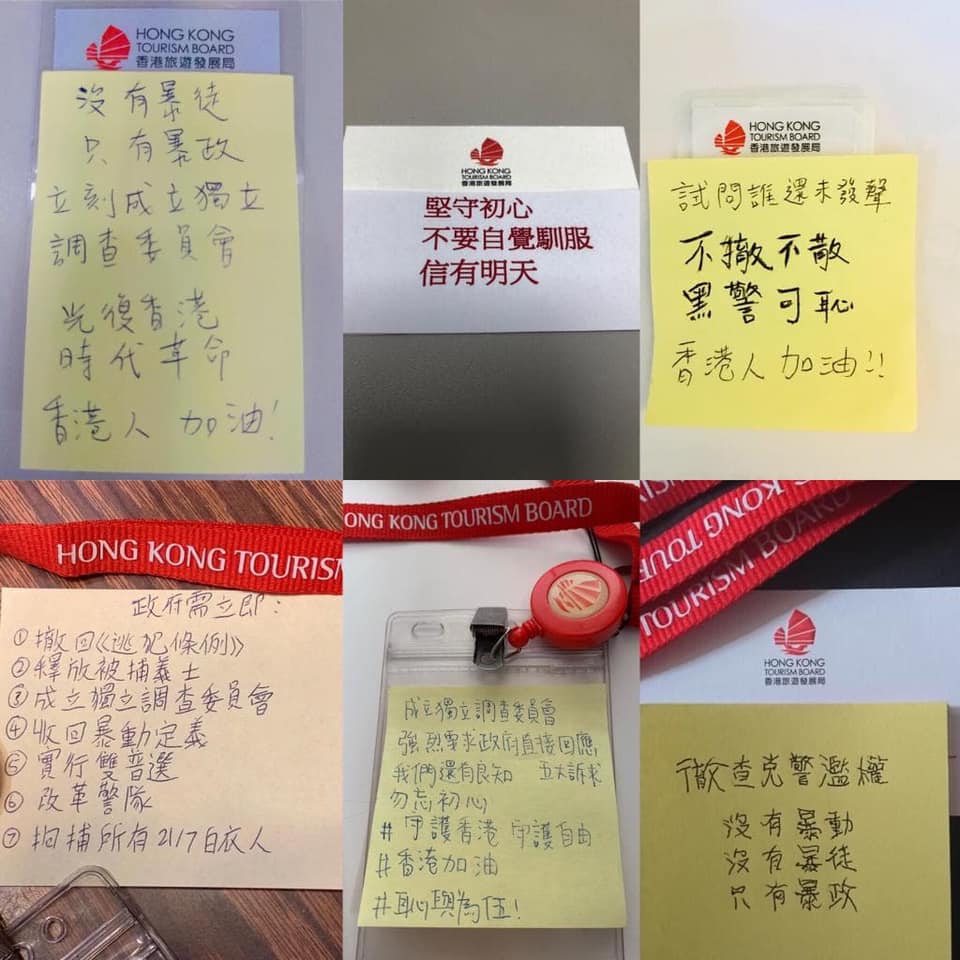 HONG KONG
TOURISM BOARD
香港旅遊發展局
沒有暴徒
只有暴政
立刻成立獨立
調查委員會
光復香港
時代革命
香港人 加油!
HONG KONG
TOURISM BOARD
香港旅遊發展局
堅守初心
不要自覺馴服
信有明天
HONG KONG
TOURISM BOARD
香港旅遊發展局
試問誰還未發聲
不撤不散
黑警可恥
香港人 加油!!
HONG KONG TOURISM
政府需立即:
①撤回《逃犯條例》
②釋放被捕義士
③成立獨立調查委員會
④收回暴動定義
⑤實行雙普選
⑥改革警隊
⑦拘捕所有21/7白衣人
ONG KONG TOURISM BOARD
成立獨立調查委員會
強烈要求政府直接回應
我們還有良知 五大訴求
勿忘初心
#守護香港 守護自由
#香港加油
#恥與為伍!
KONG TOURISM BOARD
HONG KONG TOUR
TOURISM BOARD
HONG KONG
TOURISM BOARD
香港旅遊發展局
徹查克警濫權
沒有暴動
沒有暴徒
只有暴政